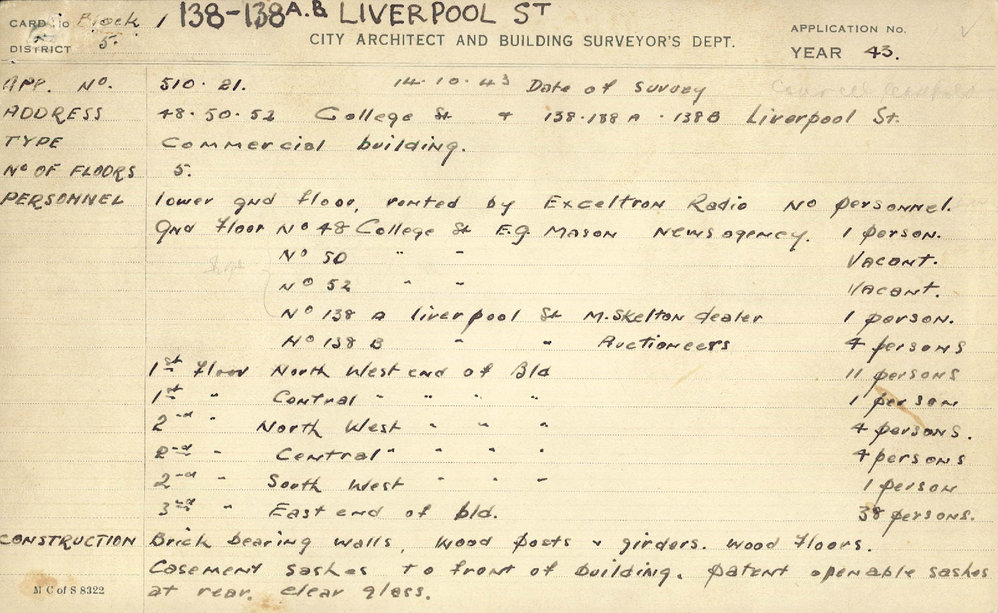 138-138A.B LIVERPOOL ST
CARD No Brock 1
DISTRICT 5.
CITY ARCHITECT AND BUILDING SURVEYOR'S DEPT.
APPLICATION No.
YEAR 43.
APP. No. 510.21. 14.10.43 Date of Survey
ADDRESS 48.50.52 College St & 138.138A.138B Liverpool St.
TYPE Commercial building.
No OF FLOORS 5.
PERSONNEL lower gnd floor, rented by Exceltron Radio No personnel.
Gnd floor No 48 College St E.G Mason Newsagency. 1 person.
No 50 " " Vacant.
No 52 " " Vacant.
Shops
No 138 A liverpool St M. Skelton dealer 1 person.
No 138 B " " Auctioneers 4 persons
1st floor North West end of Bld 11 persons
1st " Central " " " " 1 person
2nd " North West " " " 4 persons.
2nd " Central " " " " 4 persons
2nd " South West " " " 1 person
3rd " East end of bld. 38 persons.
CONSTRUCTION Brick bearing walls, wood posts & girders. wood floors.
Casement sashes to front of building. patent openable sashes
at rear. clear glass.
M C of S 8322